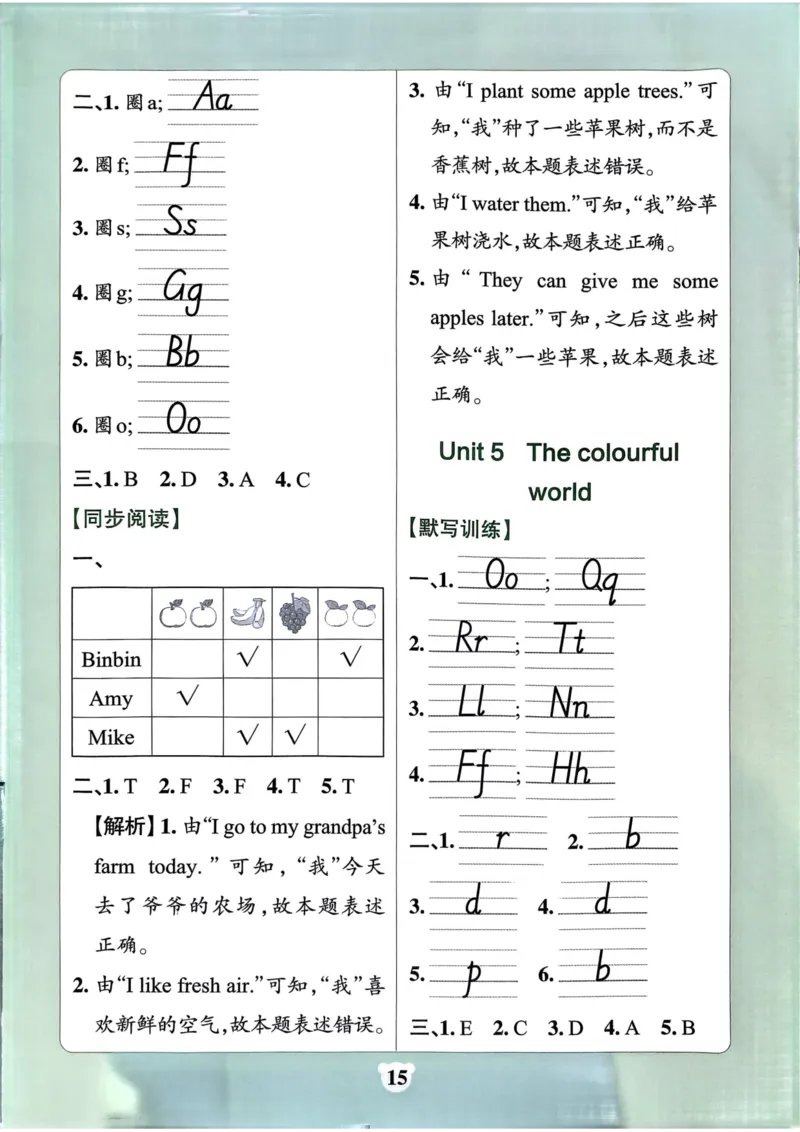 二、1. 圈a; Aa
2. 圈f; Ff
3. 圈s; Ss
4. 圈g; Gg
5. 圈b; Bb
6. 圈o; Oo
三、1. B 2. D 3. A 4. C
【同步阅读】
一、
Binbin √ √
Amy √
Mike √ √
二、1. T 2. F 3. F 4. T 5. T
【解析】1. 由“I go to my grandpa’s
farm today.”可知，“我”今天
去了爷爷的农场,故本题表述
正确。
2. 由“I like fresh air.”可知,“我”喜
欢新鲜的空气,故本题表述错误。
3. 由“I plant some apple trees.”可
知,“我”种了一些苹果树,而不是
香蕉树,故本题表述错误。
4. 由“I water them.”可知,“我”给苹
果树浇水,故本题表述正确。
5. 由“They can give me some
apples later.”可知,之后这些树
会给“我”一些苹果,故本题表述
正确。
Unit 5 The colourful
world
【默写训练】
一、1. Oo ; Qq
2. Rr ; Tt
3. Ll ; Nn
4. Ff ; Hh
二、1. r 2. b
3. d 4. d
5. p 6. b
三、1. E 2. C 3. D 4. A 5. B
15